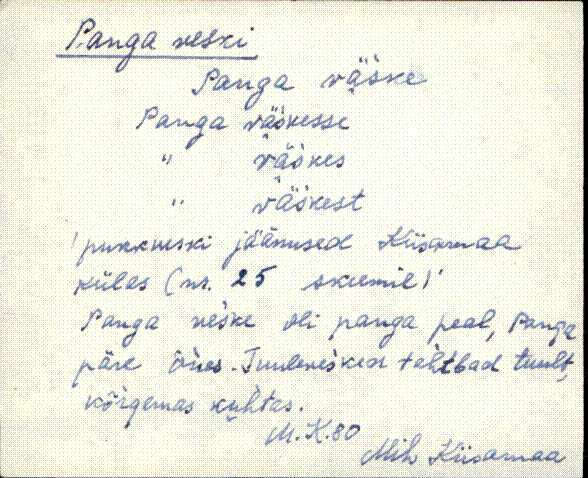 Panga veski
Panga vääske
Panga vääskesse
" vääskes
" vääskest
'pukkveski jäänused Kiisamaa
külas (nr. 25 skeemil)'
Panga veske oli panga peal, Panga
päre õues. Tuulevesked tahtbad tuult,
kõrgemas kuhtas.
M.K.80
Mih. Kiisamaa